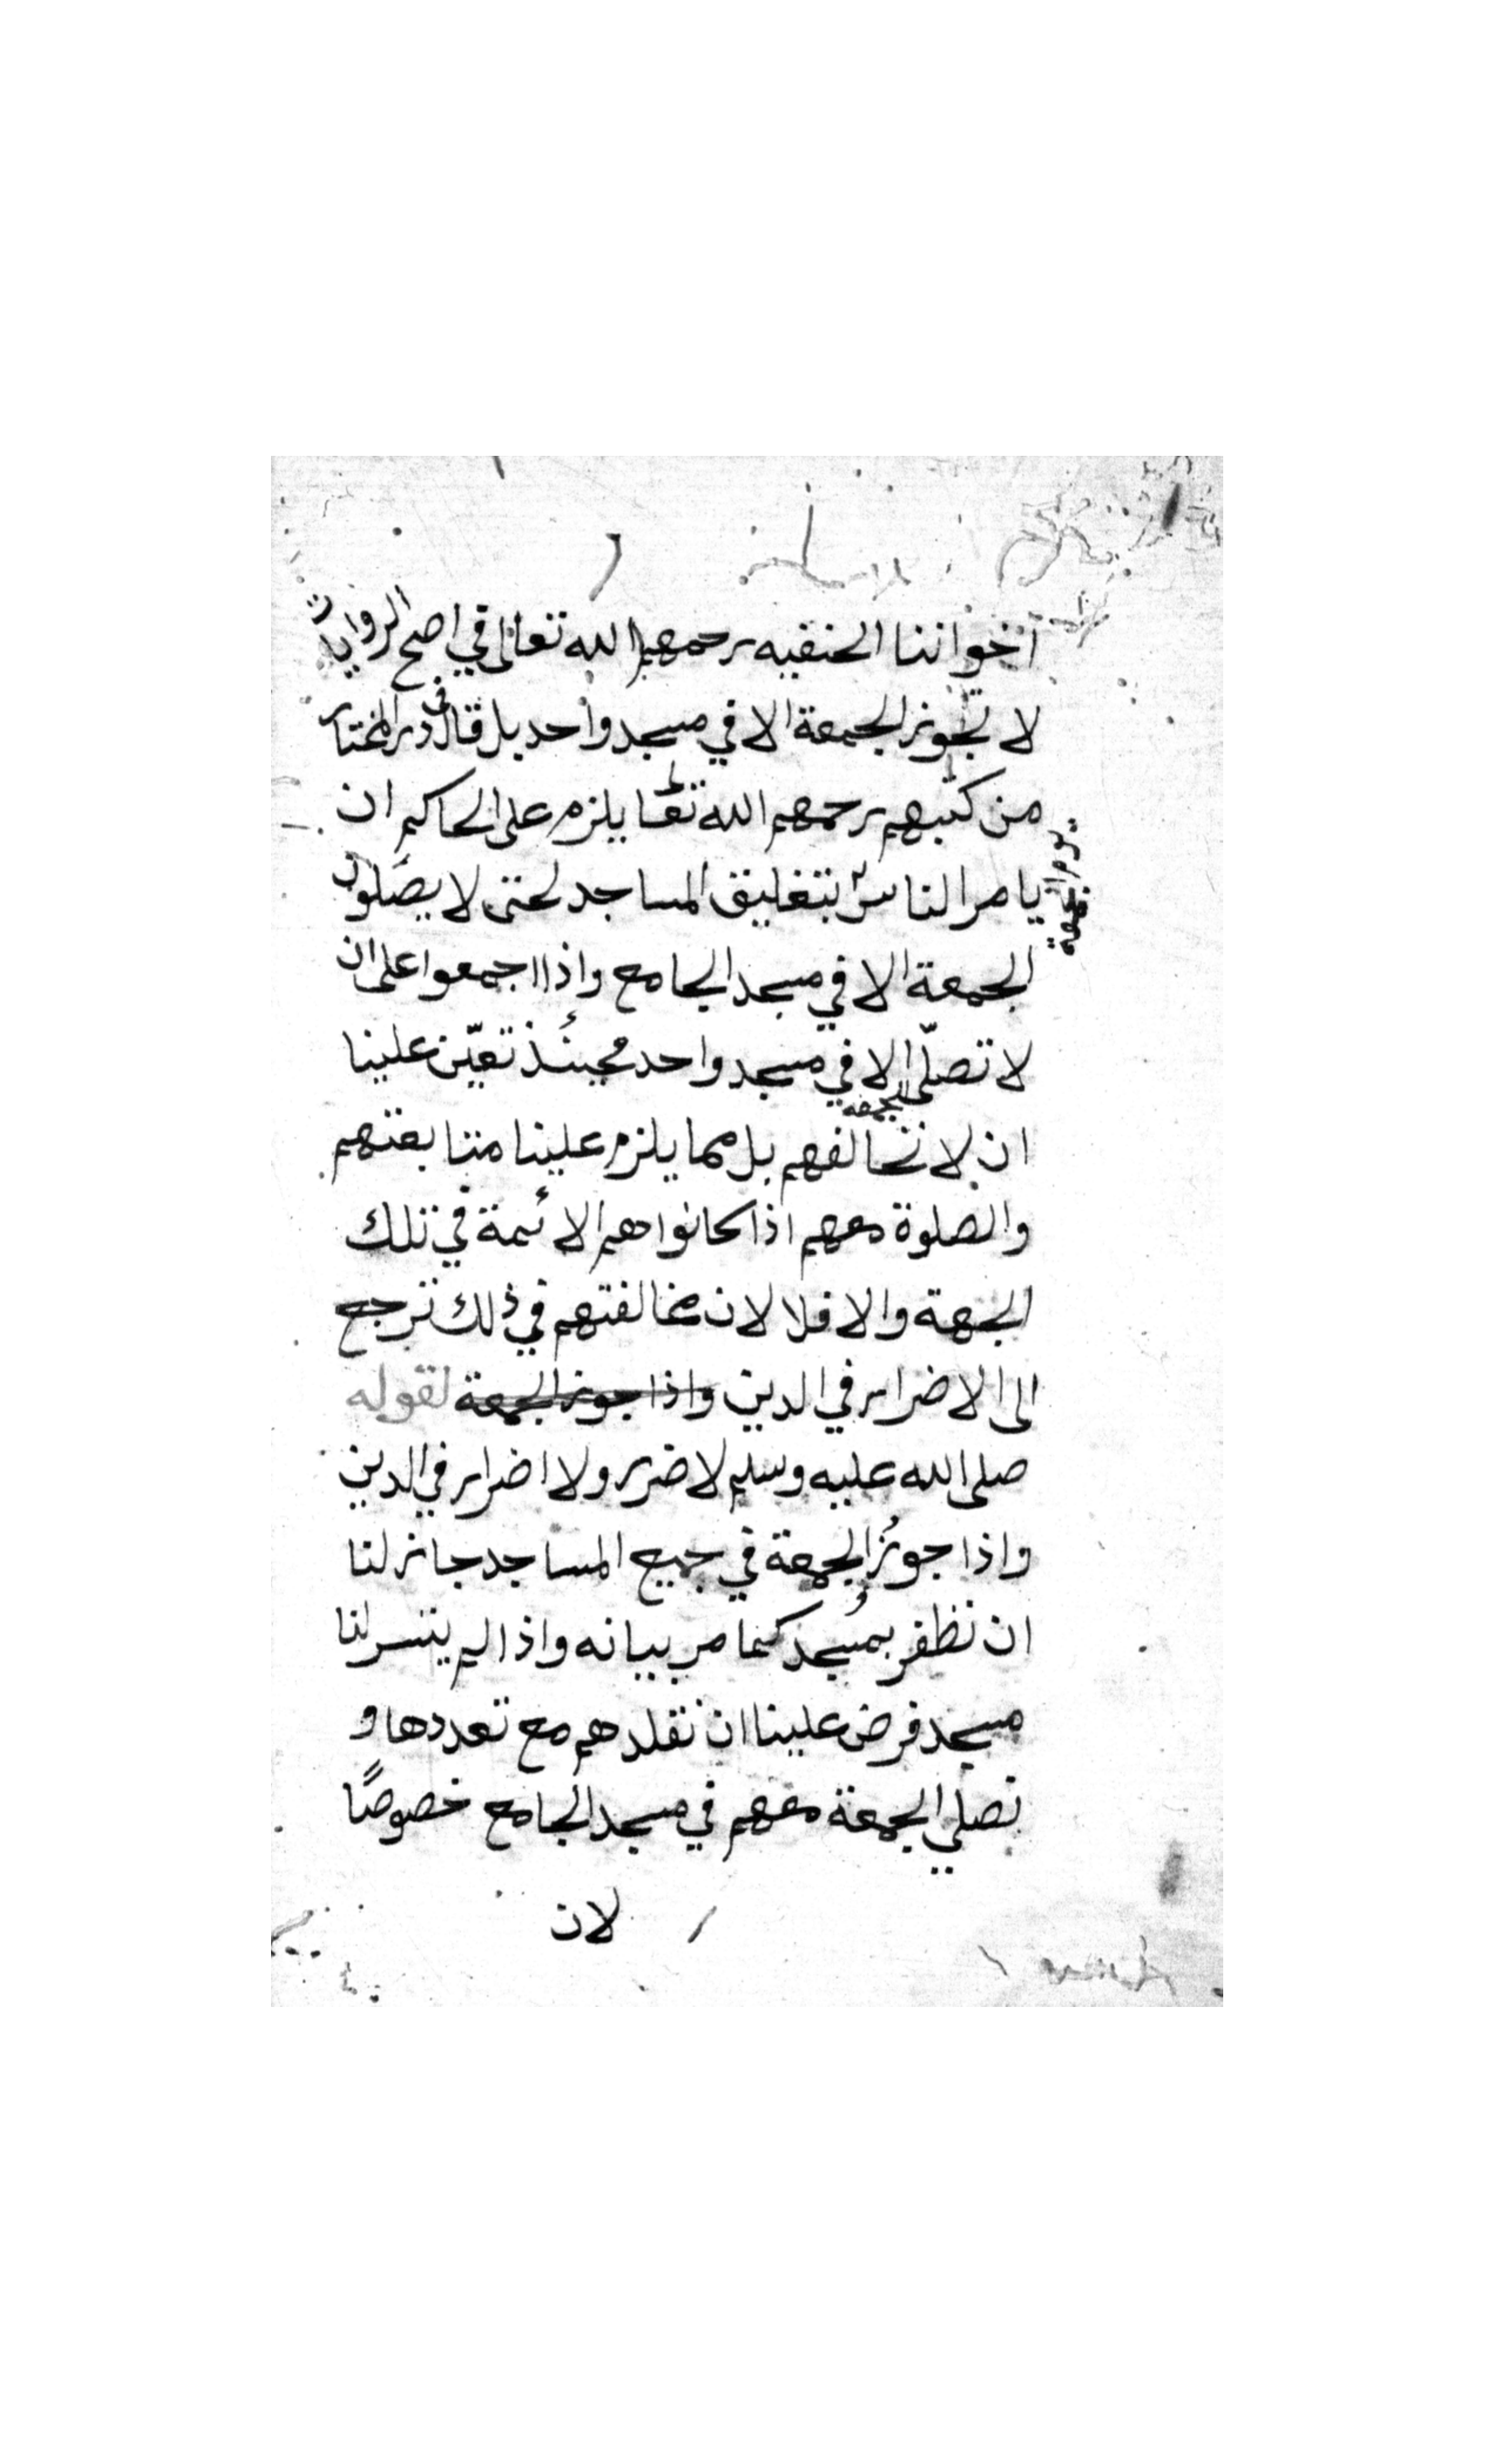 اخواننا الحنفيه رحمهم الله تعالى في اصح الروايات
لا تجوز الجمعة الا في مسجد واحد بل قال في در المختار
من كتبهم رحمهم الله تعا لى يلزم على الحاكم ان
يامر الناس بتغليق المساجد لحتى لا يصلون
يوم الجمعة
الجمعة الا في مسجد الجامع واذا اجمعوا على ان
لا تصلّى الجمعه الا في مسجد واحد فحينئذ تعيّن علينا
ان لا نخالفهم بل مما يلزم علينا متابعتهم
والصلوة معهم اذا كانوا هم الائمة في تلك
الجهة والا فلا لان مخالفتهم في ذلك ترجع
الى الاضرار في الدين واذا جوز الجمعة لقوله
صلى الله عليه وسلم لا ضرر ولا اضرار في الدين
واذا جوز الجمعة في جميع المساجد جاز لنا
ان نظفر بمسجد كما مر بيانه واذا لم يتسر لنا
مسجد فرض علينا ان نقلدهم مع تعددها و
نصلي الجمعة معهم في مسجد الجامع خصوصًا
لان